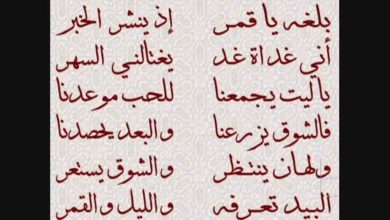 بلغه يا قمر إذ ينشر الخبر
أني غداة غد يغتالني السهر
ياليت يجمعنا للحب موعدنا
فالشوق يزرعنا والبعد يحصدنا
ولهان ينتظر والشوق يستعر
البيد تعرفه والليل والقمر